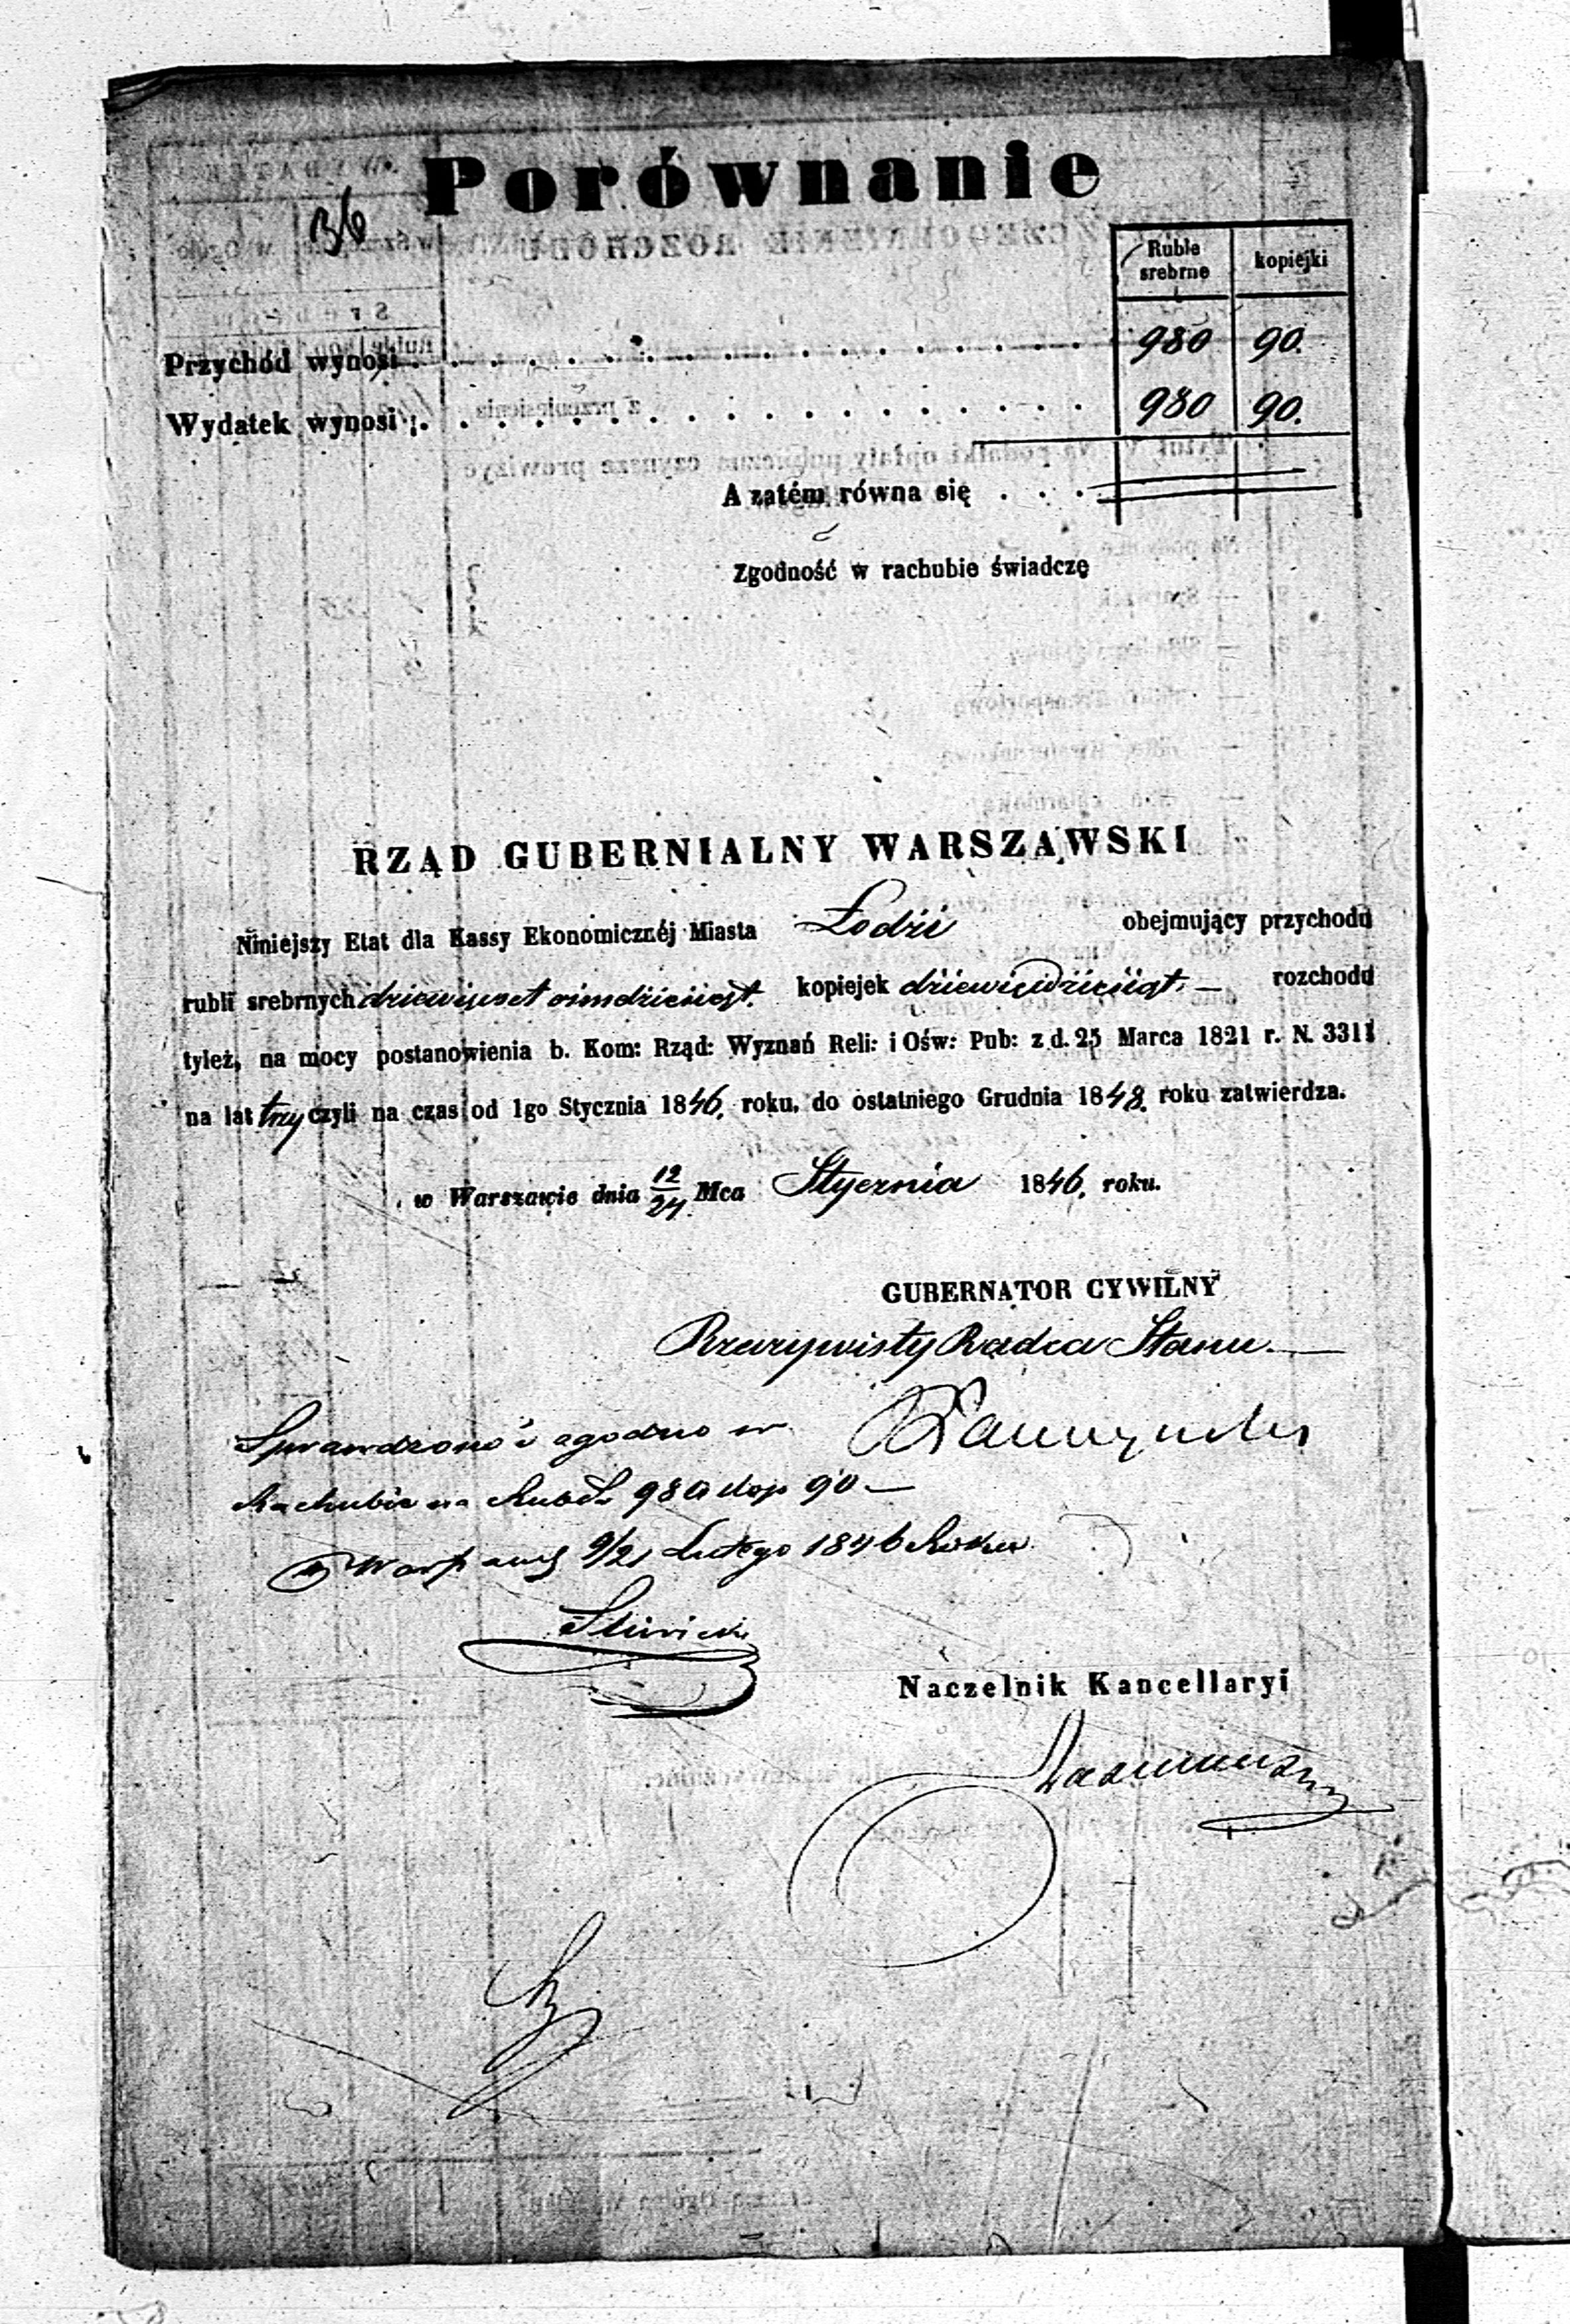 Porównanie
36
Ruble srebrne kopiejki
Przychód wynosi 980 90.
Wydatek wynosi 980 90.
A zatém równa się
Zgodność w rachubie świadczę
RZĄD GUBERNIALNY WARSZAWSKI
Niniejszy Etat dla Kassy Ekonomicznéj Miasta Łodzi obejmujący przychodu
rubli srebrnych dziewięset ośmdziesiąt. kopiejek dziewięćdziesiąt. — rozchodu
tyleż, na mocy postanowienia b. Kom: Rząd: Wyznań Reli: i Ośw: Pub: z d. 25 Marca 1821 r. N. 3311
na lat trzy czyli na czas od 1go Stycznia 1846. roku, do ostatniego Grudnia 1848. roku zatwierdza.
w Warszawie dnia 12/24 Mca Stycznia 1846. roku.
GUBERNATOR CYWILNY
Rzeczywisty Radca Stanu —
Sprawdzono i zgodno w
Rachubie na Rub S. 980 kop 90 —
w Warszawie 9/21 Lutego 1846 Roku
Śliwicki
Naczelnik Kancellaryi